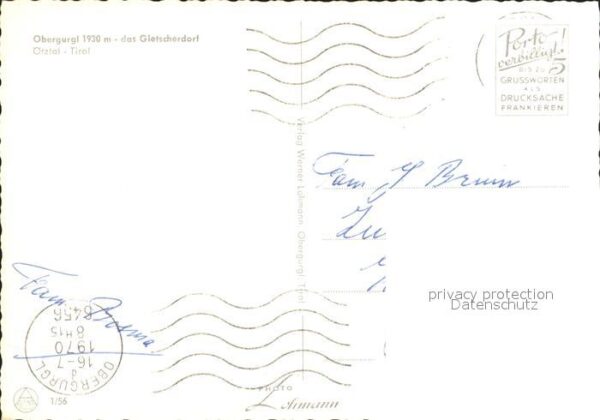 Obergurgl 1930 m - das Gletscherdorf
Ötztal - Tirol
Porto
verbilligt!
BIS ZU 5
GRUSSWORTEN
ALS
DRUCKSACHE
FRANKIEREN
Verlag Werner Lohmann Obergurgl Tirol
Fam
privacy protection
Datenschutz
Fam.
OBERGURGL
16-7
1970
8H15
6456
1/56
PHOTO
Lohmann